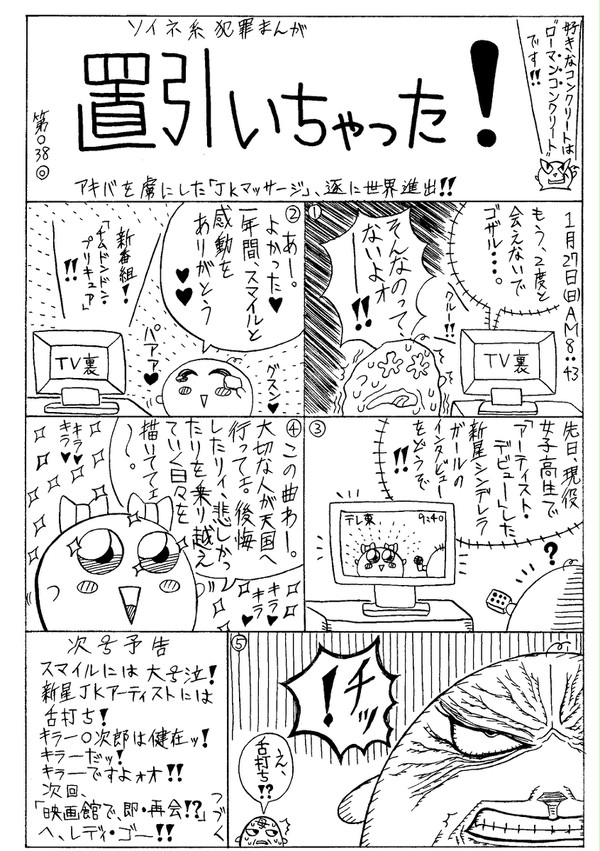 好きなコンクリートは
“ローマンコンクリート”
です!!
ソイネ系犯罪まんが
置引いちゃった!
第038◎
アキバを虜にした「JKマッサージ」、遂に世界進出!!
1月27日(日)AM8:43
もう、2度と
会えないで
ゴザル・・・。
TV裏
クルー!!
①
そんなのって、
ないよォ
ー!!
②
あー。
よかった♥
一年間、スマイルと
感動を
ありがとう
♥♥
グスン♥
パアァ♥
新番組!
『ドムドンドン・
プリキュア』
!!
TV裏
先日、現役
女子高生で
アーティスト・
デビューした
新星シンデレラ
ガールの
インタビュー
をどうぞ
!!
③
テレ東
9:40
?
④
この曲わー。
大切な人が天国へ
行ってェ。後悔
したりィ、悲しかっ
たりを乗り越え
ていく日々を
描いててェ
〜。
キラ
キラ♥♥
キラ
キラ♥♥
⑤
チッ!
え、
舌打ち
!?
次号予告
スマイルには大号泣!
新星JKアーティストには
舌打ち!
キラー〇次郎は健在ッ!
キラーだッ!
キラーですよォオ!!
次回、
「映画館で、即・再会!?」
へ、レディ・ゴー!!
つづく